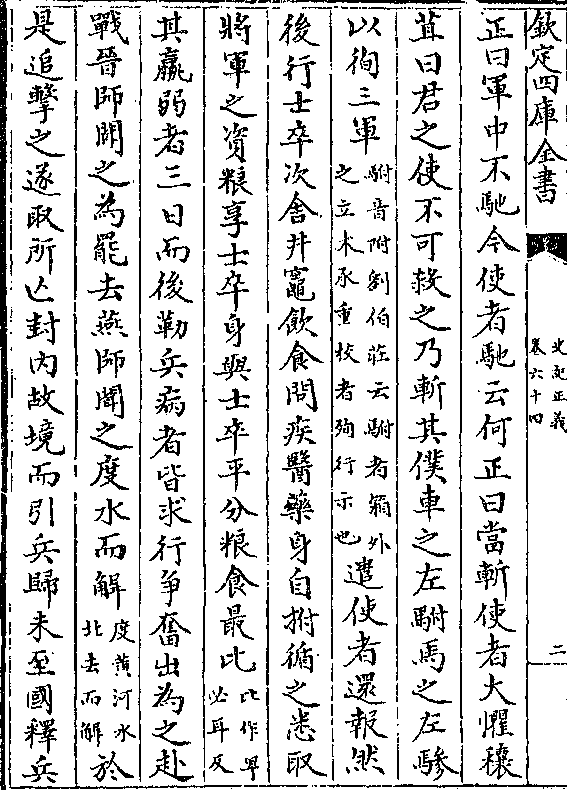 欽定四庫全書
史記正義
卷六十四
二
正曰軍中不馳今使者馳云何正曰當斬使者大懼穰
苴曰君之使不可殺之乃斬其僕車之左駙馬之左驂
以徇三軍駙音附劉伯莊云駙者箱外之立木承重校者殉行示也遣使者還報然
後行士卒次舍井竈飲食問疾醫藥身自拊循之悉取
將軍之資粮享士卒身與士卒平分粮食最比比作卑必耳反
其羸弱者三日而後勒兵病者皆求行争奮出為之赴
戰晉師聞之為罷去燕師聞之度水而解度黄河水北去而解於
是追擊之遂取所亡封内故境而引兵歸未至國釋兵